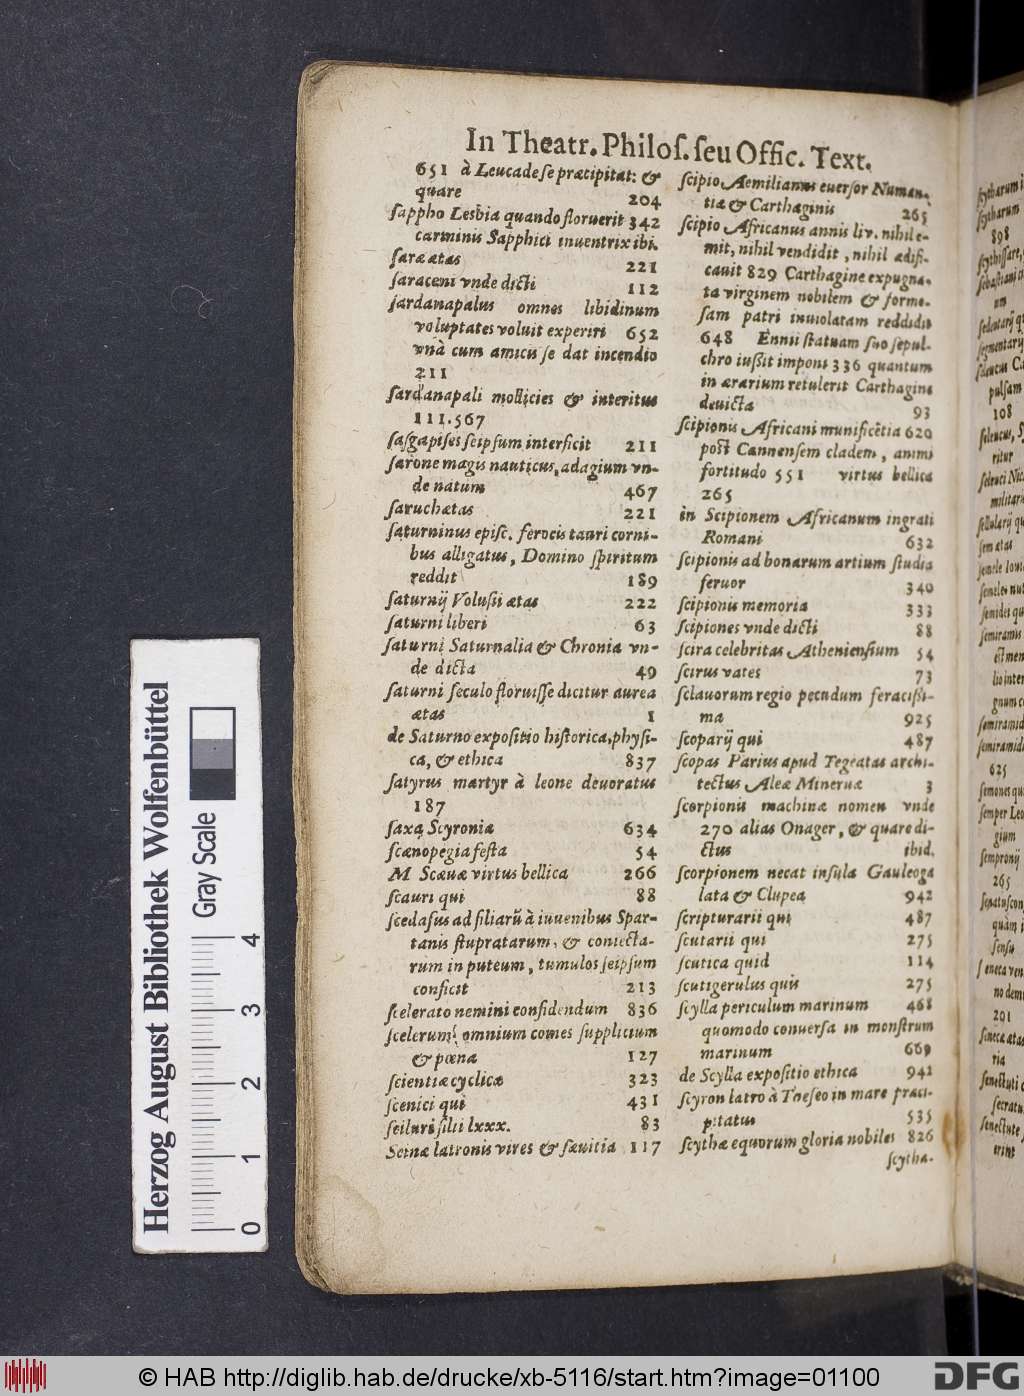 In Theatr. Philoſ. ſeu Offic. Text.
651 à Leucade ſe præcipitat: &
quare 204
ſappho Lesbia quando floruerit 342
carminis Sapphici inuentrix ibi.
ſaræ ætas 221
ſaraceni vnde dicti 112
ſardanapalus omnes libidinum
voluptates voluit experiri 652
vnà cum amicis ſe dat incendio
211
ſardanapali mollicies & interitus
111.567
ſaſgapiſes ſeipſum interficit 211
ſarone magis nauticus, adagium vn-
de natum 467
ſaruchætas 221
ſaturninus epiſc. ferocis tauri corni-
bus alligatus, Domino ſpiritum
reddit 189
ſaturnij Voluſii ætas 222
ſaturni liberi 63
ſaturni Saturnalia & Chronia vn-
de dicta 49
ſaturni ſeculo floruiſſe dicitur aurea
ætas 1
de Saturno expoſitio hiſtorica, phyſi-
ca, & ethica 837
ſatyrus martyr à leone deuoratus
187
ſaxa Scyronia 634
ſcænopegia feſta 54
M Scæuæ virtus bellica 266
ſcauri qui 88
ſcedaſus ad filiarũ à iuuenibus Spar-
tanis ſtupratarum, & coniecta-
rum in puteum, tumulos ſeipſum
conficit 213
ſcelerato nemini confidendum 836
ſcelerum omnium comes ſupplicium
& pœna 127
ſcientiæ cyclicæ 323
ſcenici qui 431
ſciluri filii lxxx. 83
Scinæ latronis vires & ſæuitia 117
ſcipio Aemilianus euerſor Numan-
tiæ & Carthaginis 265
ſcipio Africanus annis liv. nihil e-
mit, nihil vendidit, nihil ædifi-
cauit 829 Carthagine expugna-
ta virginem nobilem & formo-
ſam patri inuiolatam reddidit
648 Ennii ſtatuam ſuo ſepul-
chro iuſſit imponi 336 quantum
in ærarium retulerit Carthagine
deuicta 93
ſcipionis Africani munificẽtia 620
poſt Cannenſem cladem, animi
fortitudo 551 virtus bellica
265
in Scipionem Africanum ingrati
Romani 632
ſcipionis ad bonarum artium ſtudia
feruor 340
ſcipionis memoria 333
ſcipiones vnde dicti 88
ſcira celebritas Athenienſium 54
ſcirus vates 73
ſclauorum regio pecudum feraciſſi-
ma 925
ſcoparij qui 487
ſcopas Parius apud Tegeatas archi-
tectus Aleæ Mineruæ 3
ſcorpionis machinæ nomen vnde
270 alias Onager, & quare di-
ctus ibid.
ſcorpionem necat inſula Gauleoga
lata & Clupea 942
ſcripturarii qui 487
ſcutarii qui 275
ſcutica quid 114
ſcutigerulus quis 275
ſcylla periculum marinum 468
quomodo conuerſa in monſtrum
marinum 669
de Scylla expoſitio ethica 941
ſcyron latro à Theſeo in mare præci-
pitatus 535
ſcythæ equorum gloria nobiles 826
ſcytha-
ſcytharum
898
ſcythiſſare,
um
108
ritur
militari
ſem ætas
ſemiramis
625
gium
ſempronij
265
quàm
201
ria
erint
Herzog August Bibliothek Wolfenbüttel
Gray Scale
0 1 2 3 4
© HAB http://diglib.hab.de/drucke/xb-5116/start.htm?image=01100
DFG